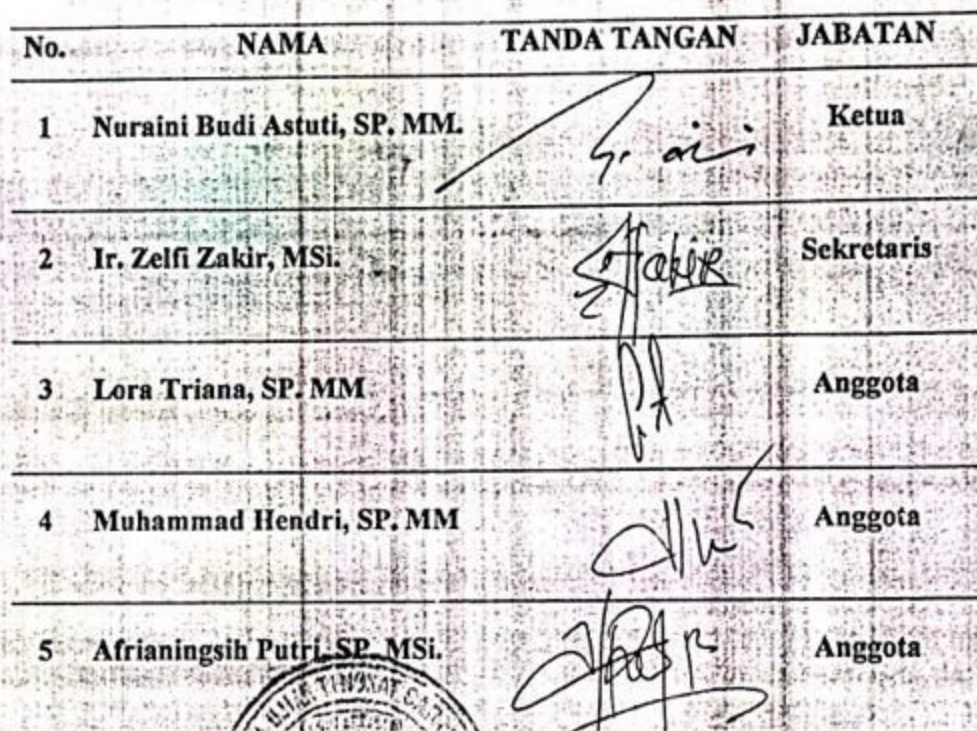 No. NAMA TANDA TANGAN JABATAN
1 Nuraini Budi Astuti, SP. MM. Ketua
2 Ir. Zelfi Zakir, MSi. Sekretaris
3 Lora Triana, SP. MM Anggota
4 Muhammad Hendri, SP. MM Anggota
5 Afrianingsih Putri, SP. MSi. Anggota
TINGKAT